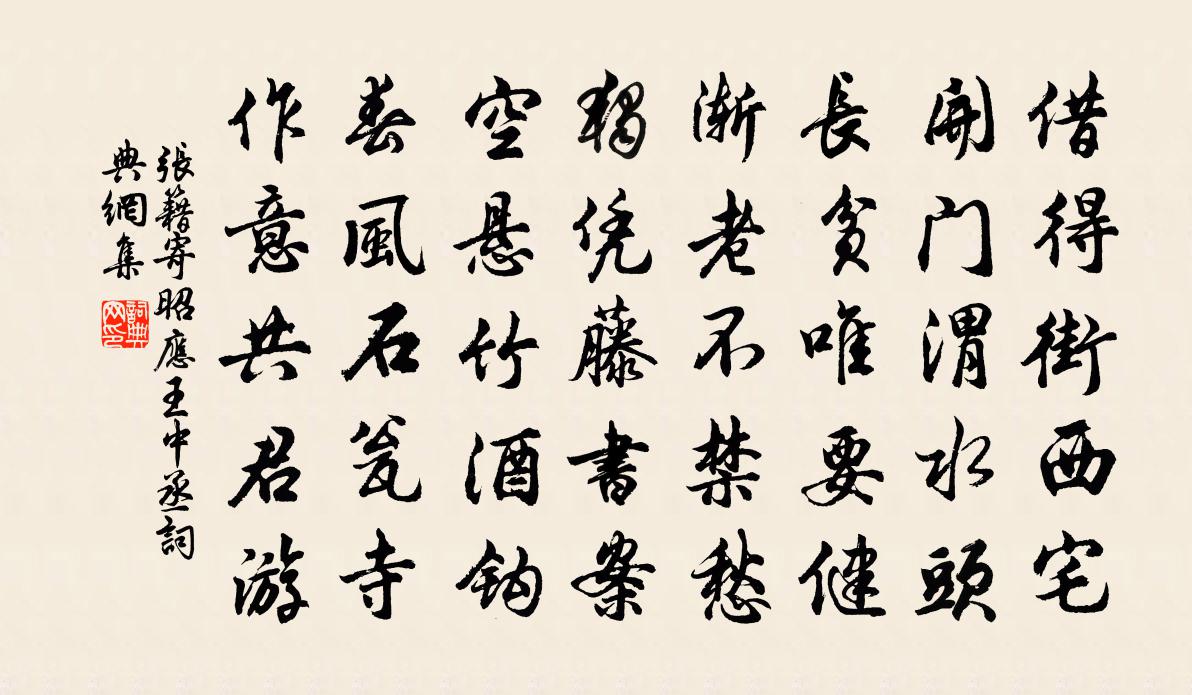 借得街西宅
開门渭水頭
長貧唯要健
漸老不禁愁
獨凭藤書案
空悬竹酒鈎
春風石瓮寺
作意共君游
張籍寄昭應王中丞詞
典網集
詞典网印